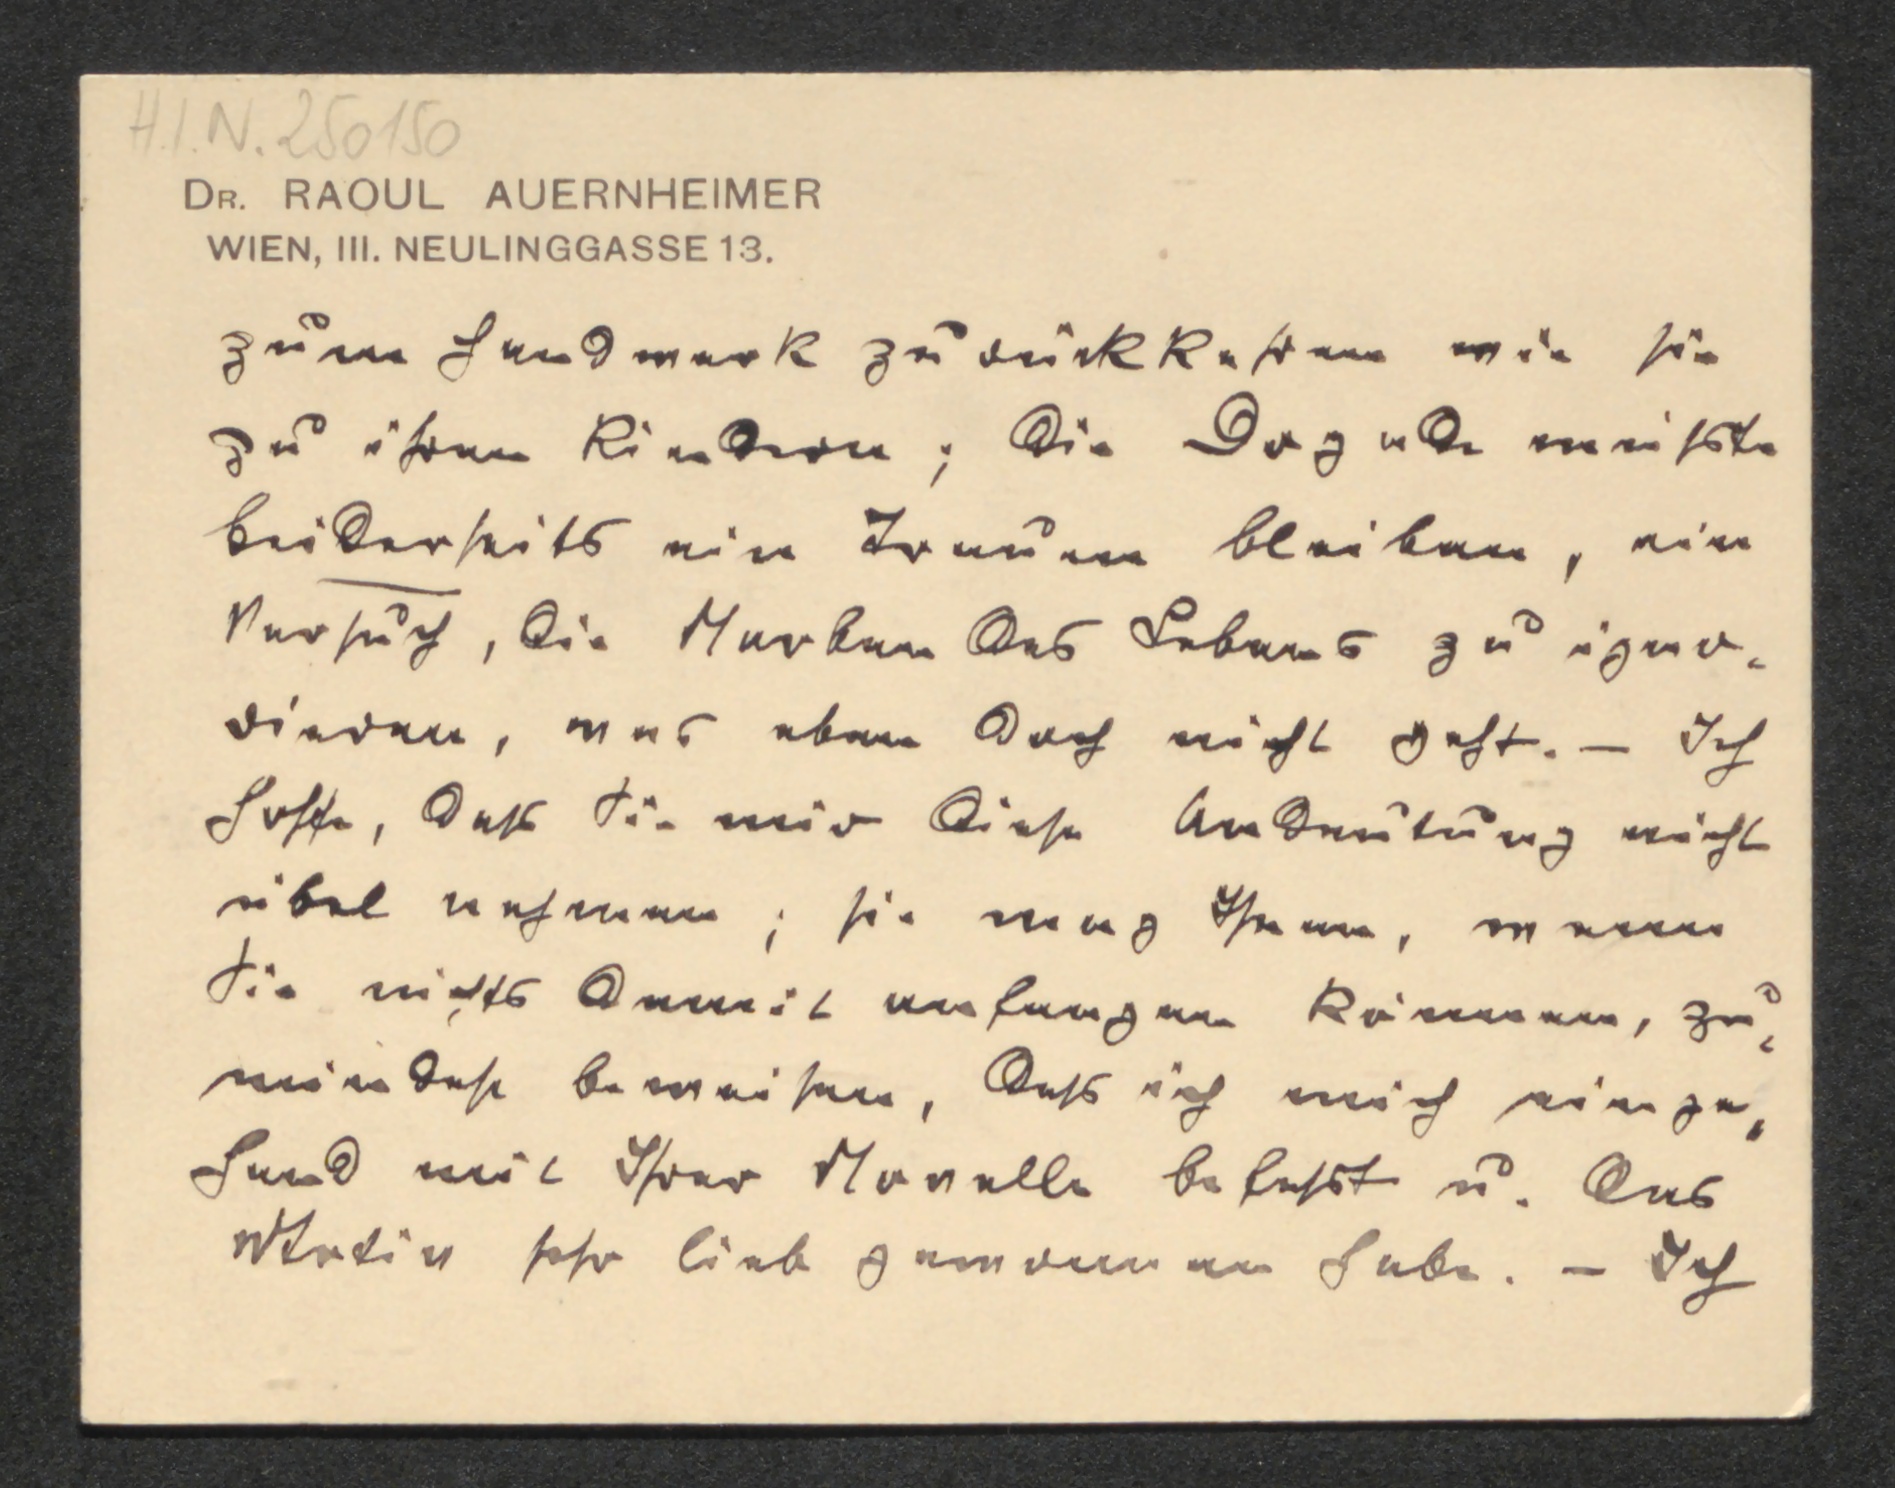 H.I.N. 250150
DR. RAOUL AUERNHEIMER
WIEN, III. NEULINGGASSE 13.
zum Handwerk zurückkehren wie sie
zu ihren Kindern; die Dryade müsste
beiderseits ein Traum bleiben, ein
Versuch, die Narben des Lebens zu igno-
rieren, was eben doch nicht geht. – Ich
hoffe, dass Sie mir diese Andeutung nicht
übel nehmen; sie mag Ihnen, wenn
Sie nichts damit anfangen können, zu-
mindest beweisen, dass ich mich einge-
hend mit Ihrer Novelle befasst u. das
Motiv sehr lieb gewonnen habe. – Ich